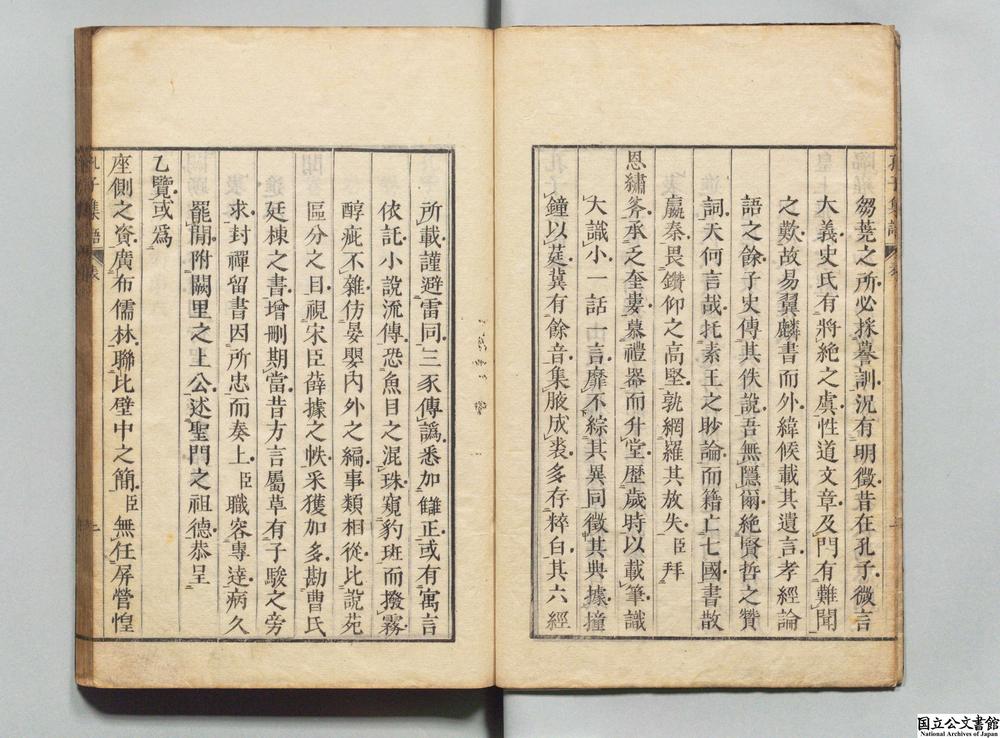 芻蕘之所必採謩訓況有明徵昔在孔子微言
大義史氏有將絶之虞性道文章及門有難聞
之歎故易翼麟書而外緯候載其遺言孝經論
語之餘子史傳其佚說吾無隱爾絶賢哲之贊
詞天何言哉托素王之眇論而籍亡七國書散
嬴秦畏鑽仰之高堅孰網羅其放失臣拜
恩繡斧承乏奎婁慕禮器而升堂歷歲時以載筆識
大識小一話一言靡不綜其異同徵其典據撞
鐘以莛冀有餘音集腋成裘多存粹白其六經
所載謹避雷同三豕傳譌悉加讎正或有寓言
依託小說流傳恐魚目之混珠窺豹班而撥霧
醇疵不雜仿晏嬰內外之編事類相從比說苑
區分之目視宋臣薛據之帙采獲加多勘曹氏
廷棟之書增刪期當昔方言屬草有子駿之旁
求封禪留書因所忠而奏上臣職容專達病久
罷閒附闕里之上公述聖門之祖德恭呈
乙覽或爲
座側之資廣布儒林聯比壁中之簡臣無任屏營惶
孔子集語
表
國立公文書館
National Archives of Japan